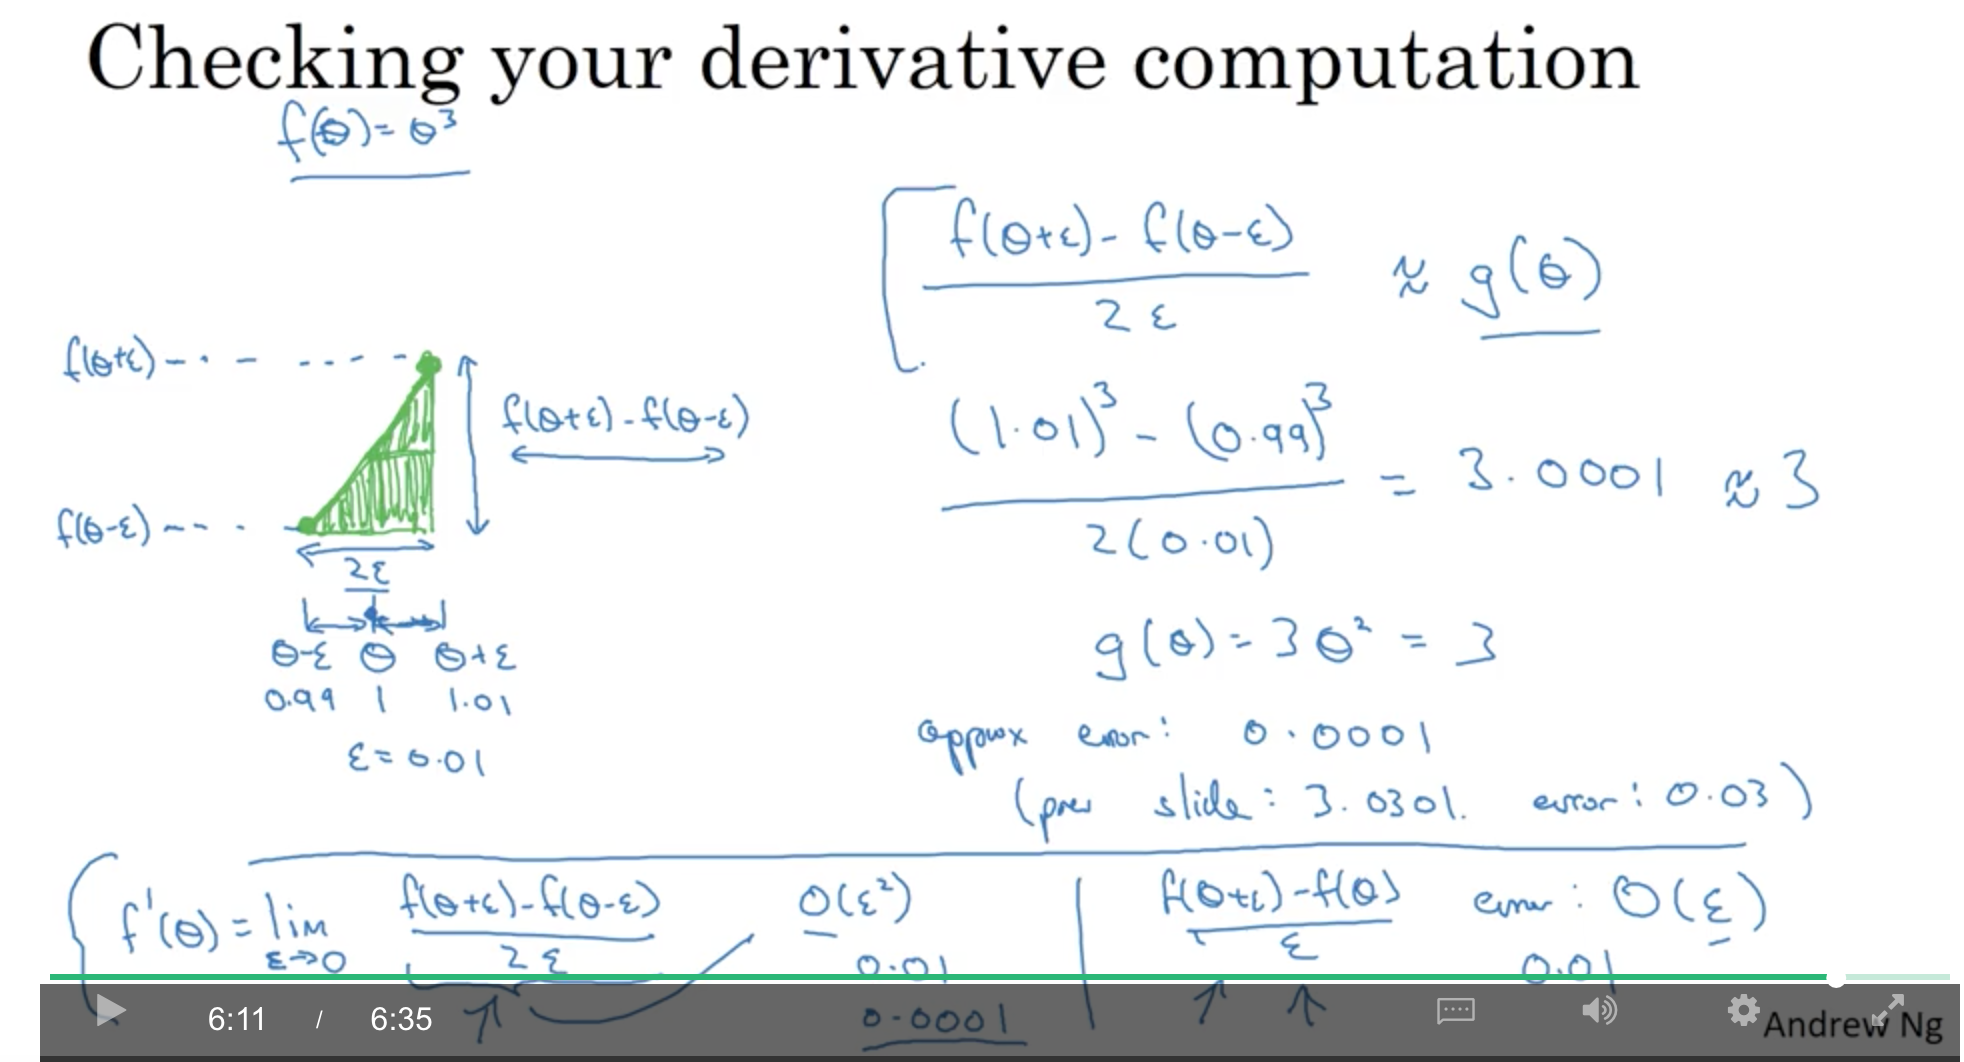 Checking your derivative computation
f(θ) = θ³
f(θ+ε) - f(θ-ε)
2ε
≈ g(θ)
f(θ+ε)
f(θ+ε) - f(θ-ε)
f(θ-ε)
2ε
θ-ε θ θ+ε
0.99 1 1.01
ε = 0.01
(1.01)³ - (0.99)³
2(0.01)
= 3.0001 ≈ 3
g(θ) = 3θ² = 3
approx error: 0.0001
(prev slide: 3.0301. error: 0.03)
f'(θ) = lim
ε→0
f(θ+ε) - f(θ-ε)
2ε
O(ε²)
0.01
0.0001
f(θ+ε) - f(θ)
ε
error: O(ε)
0.01
6:11 / 6:35
Andrew Ng